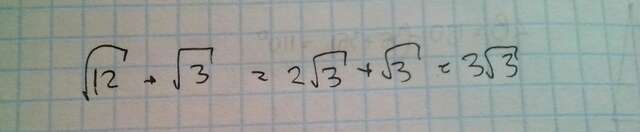 √12 + √3 = 2√3 + √3 = 3√3